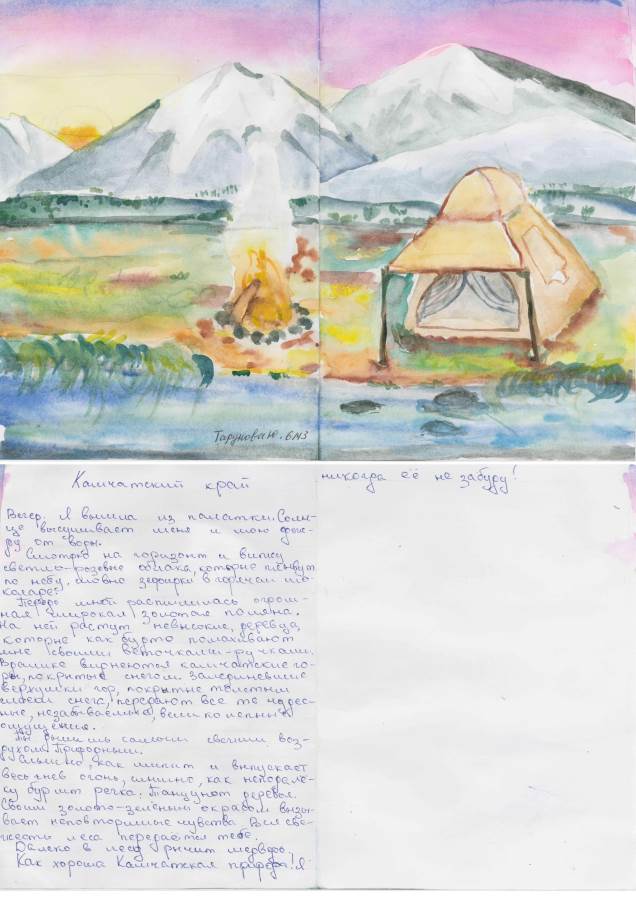 Тарунова Ю. 6 №3
Камчатский край
Вечер. Я вышла из палатки. Солн-
це высушивает меня и мою
от воды.
Смотрю на горизонт и вижу
светло-розовые облака, которые плывут
по небу, словно зефирки в горячем шо-
коладе.
Передо мной распустилась огром-
ная широкая золотая поляна.
На ней растут невысокие деревца,
которые как будто помахивают
мне своими веточками-ручками.
Вдалике виднеются камчатские го-
ры, покрытые снегом. Заледеневшие
верхушки гор, покрытые толстым
слоем снега, передают все те чудес-
ные, незабываемые, великолепные
ощущения.
Ты дышишь самым свежим воз-
духом. Природным.
Слышно, как шипит и выпускает
весь гнев огонь, слышно, как неподалё-
ку бурлит речка. Танцуют деревья.
Своим золото-зелёным окрасом вызы-
вает неповторимые чувства. Вся све-
жесть леса передаётся тебе.
Далеко в лесу рычит медведь.
Как хороша Камчатская природа! Я
никогда её не забуду!